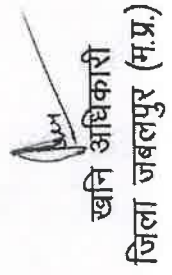 खनि अधिकारी
जिला जबलपुर (म.प्र.)